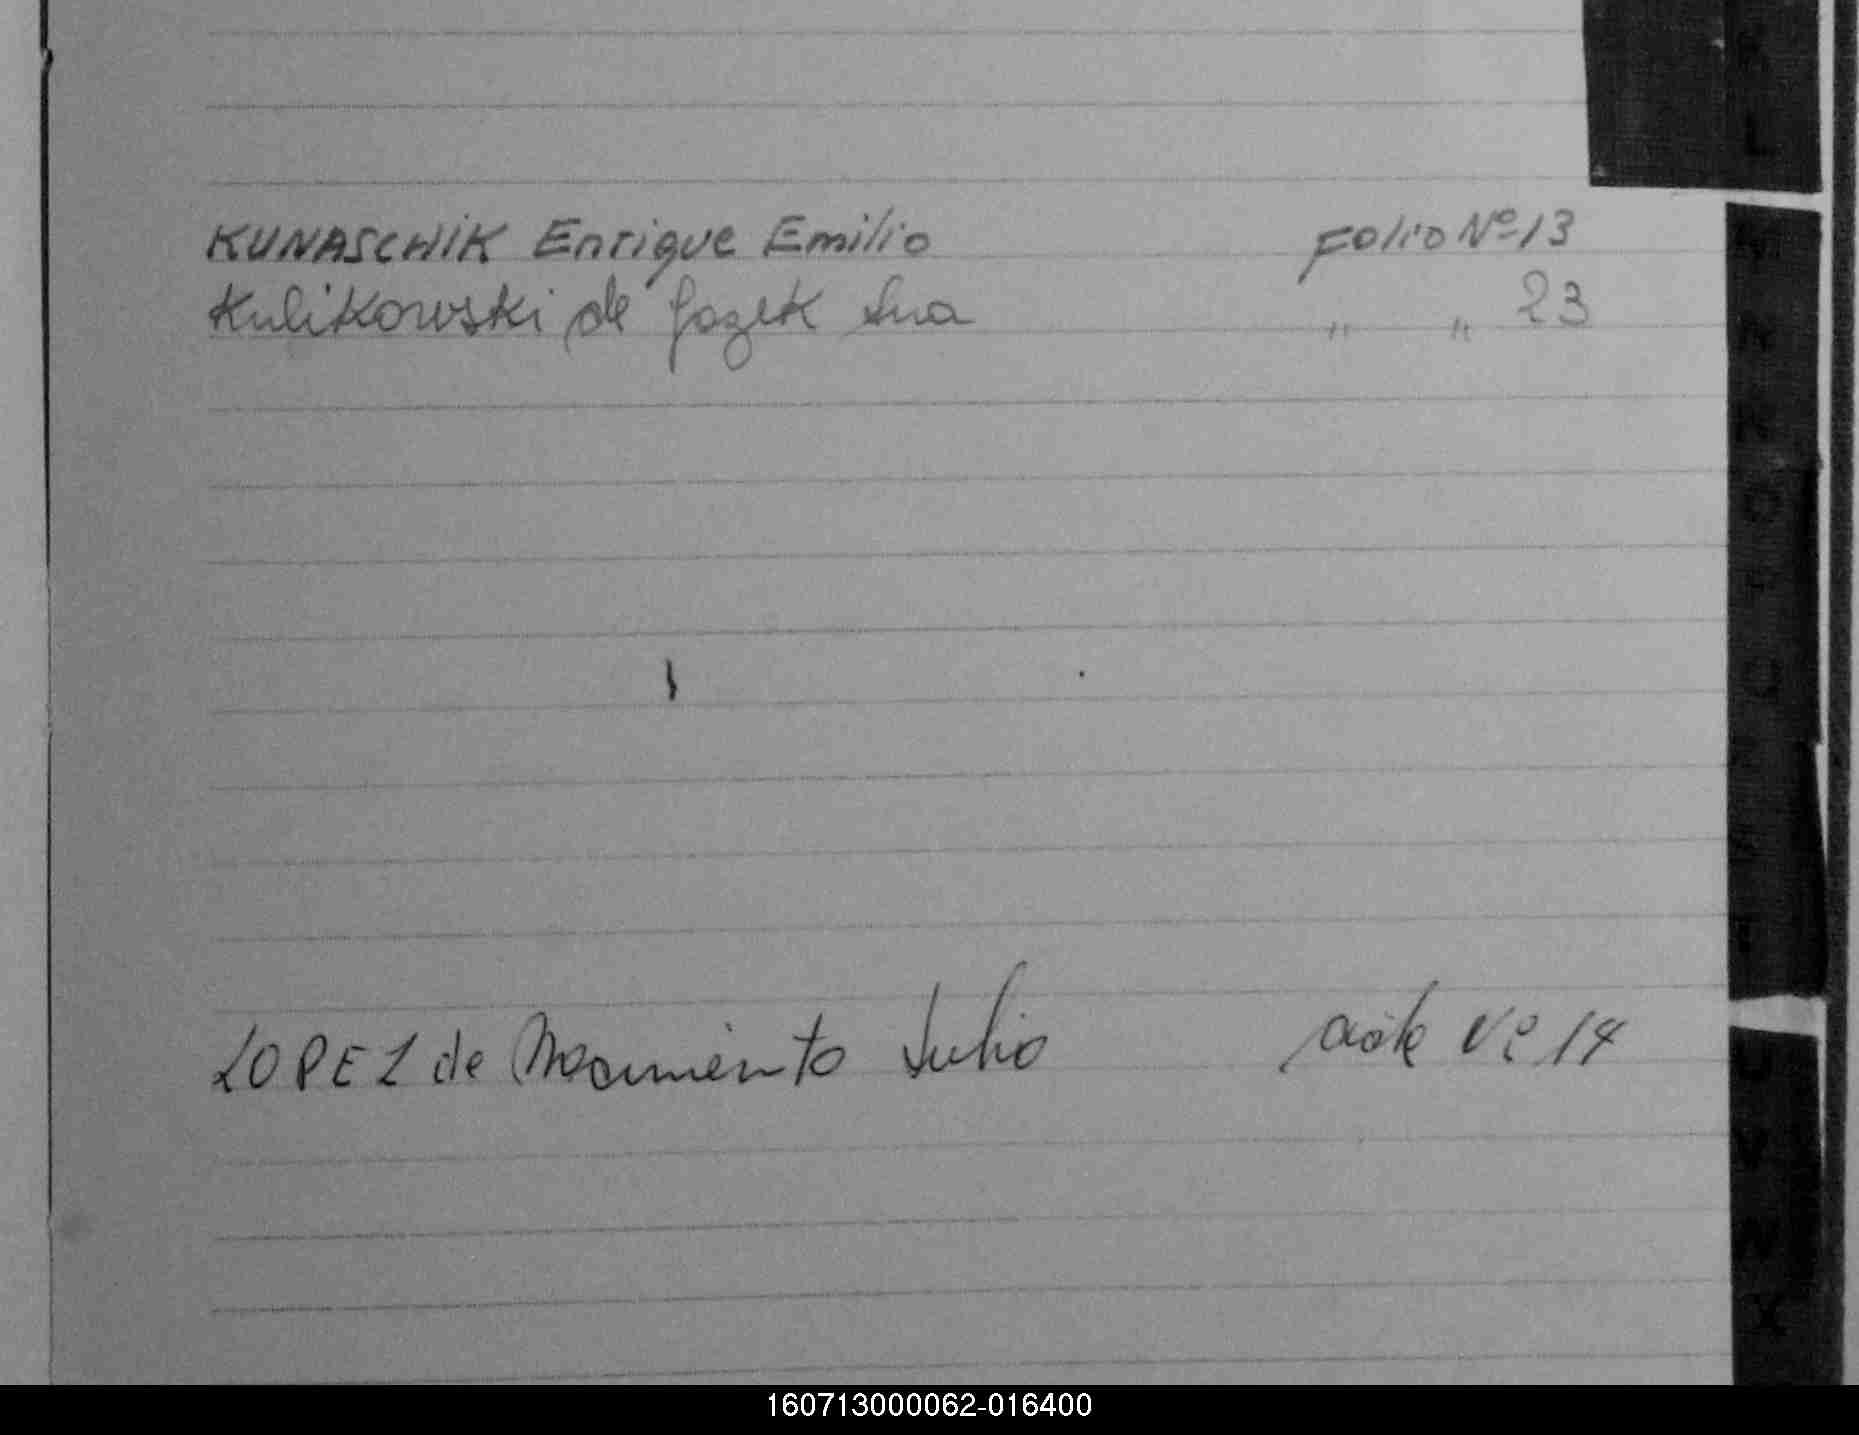 KUNASCHIK Enrique Emilio Folio Nº 13
Kulikowski de Jazek Ana " " 23
LOPEZ de Nacimiento Julio Acta Nº 14
160713000062-016400